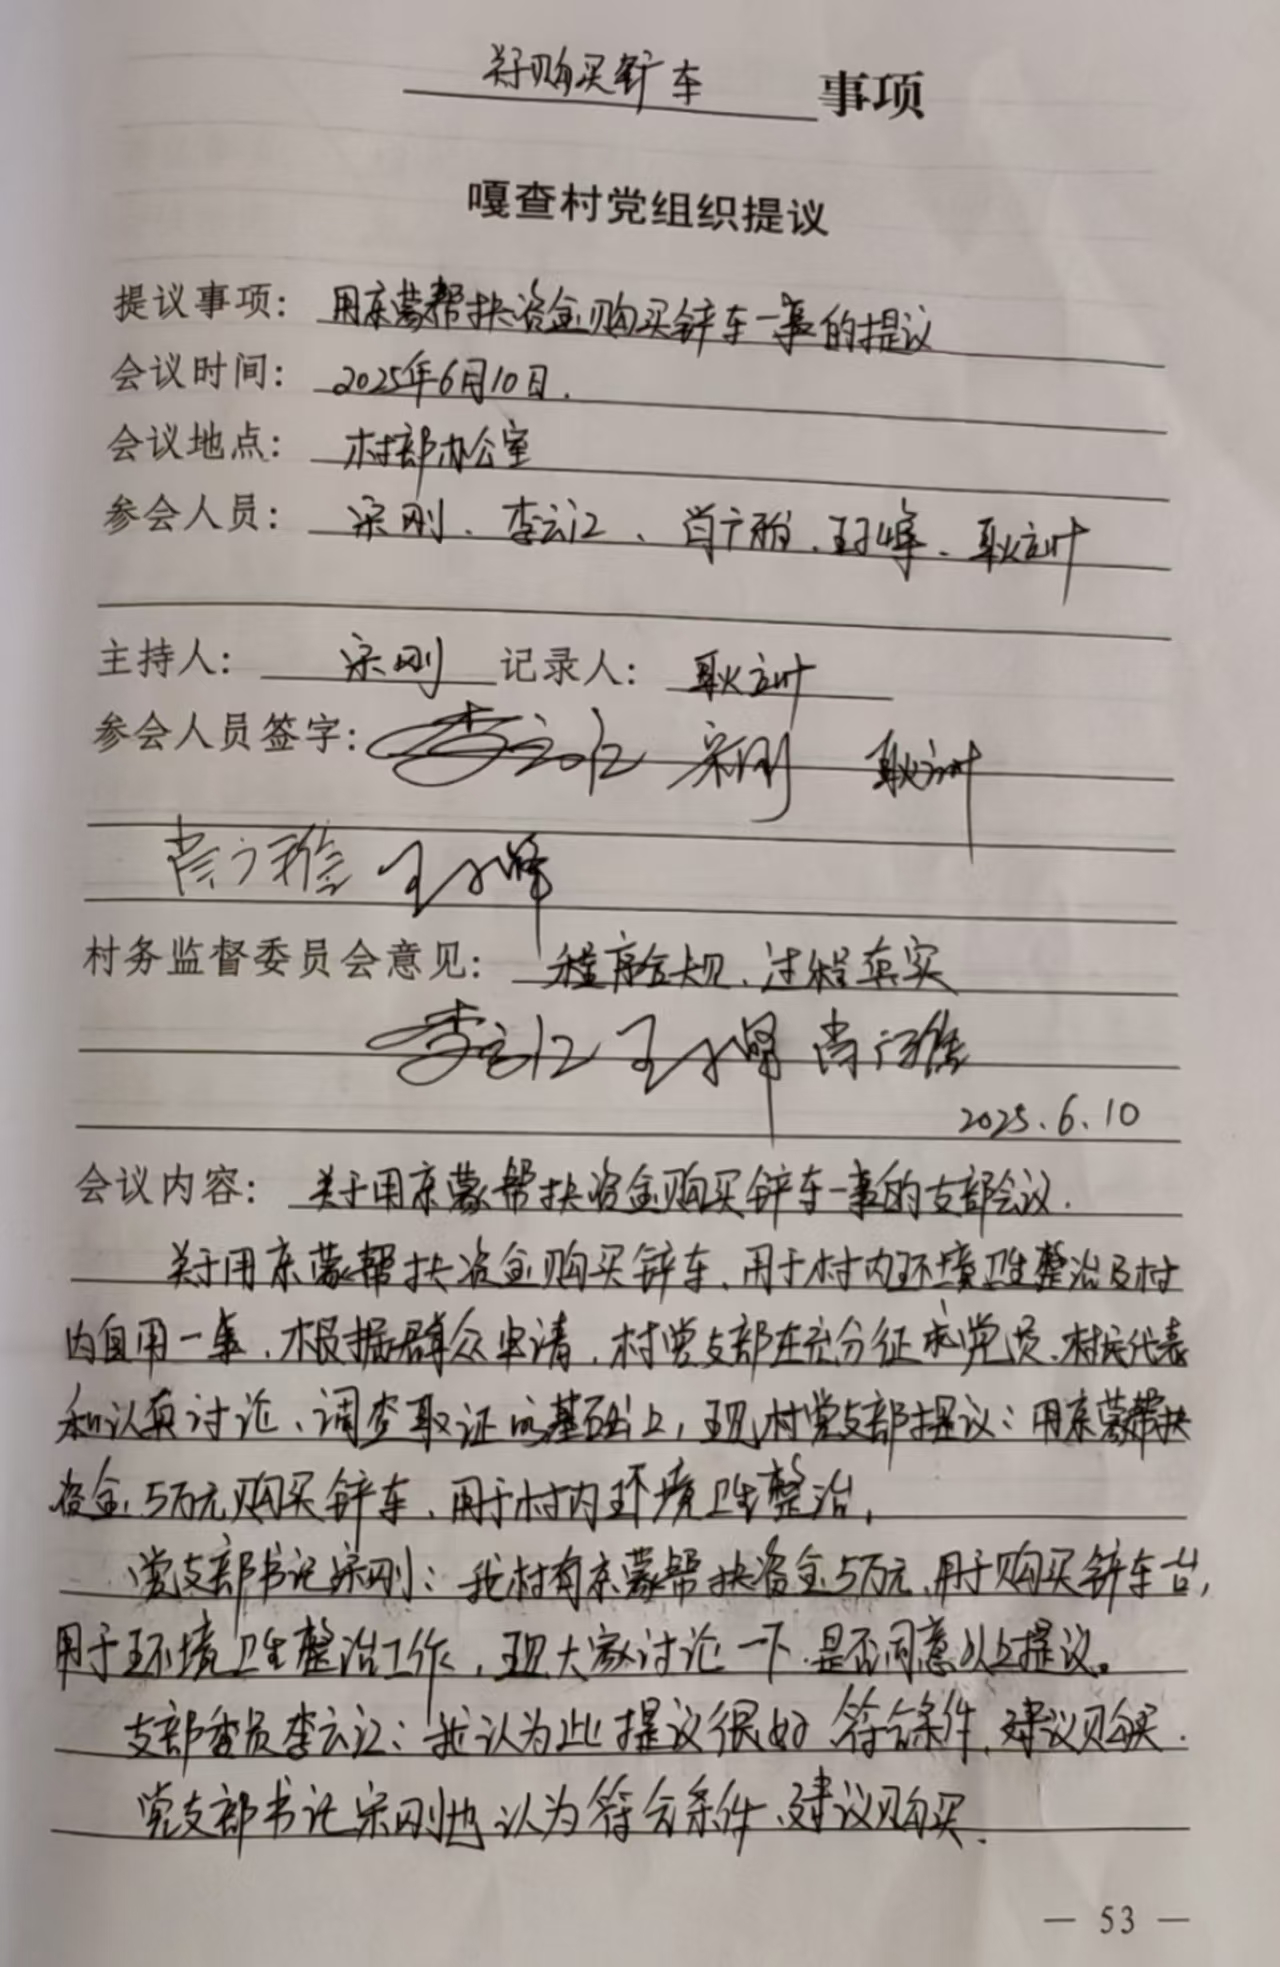 关于购买铲车 事项
嘎查村党组织提议
提议事项：用京蒙帮扶资金购买铲车一事的提议
会议时间：2025年6月10日.
会议地点：村部办公室
参会人员：宋刚、李云江、尚广雅、王小峰、耿立叶
主持人：宋刚 记录人：耿立叶
参会人员签字：李云江 宋刚 耿立叶
尚广雅 王小峰
村务监督委员会意见：程序合规、过程真实
李云江 王小峰 尚广雅
2025.6.10
会议内容：关于用京蒙帮扶资金购买铲车一事的支部会议.
关于用京蒙帮扶资金购买铲车、用于村内环境卫生整治及村
内自用一事，根据群众申请，村党支部在充分征求党员、村民代表
和认真讨论、调查取证的基础上，现村党支部提议：用京蒙帮扶
资金5万元购买铲车、用于村内环境卫生整治，
党支部书记宋刚：我村有京蒙帮扶资金5万元、用于购买铲车一台，
用于环境卫生整治工作，现大家讨论一下是否同意以上提议。
支部委员李云江：我认为此提议很好 符合条件，建议购买.
党支部书记宋刚也认为符合条件、建议购买.
— 53 —